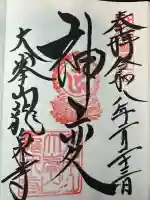 奉拝 令和八年一月二十三日
神変
大峯山龍泉寺